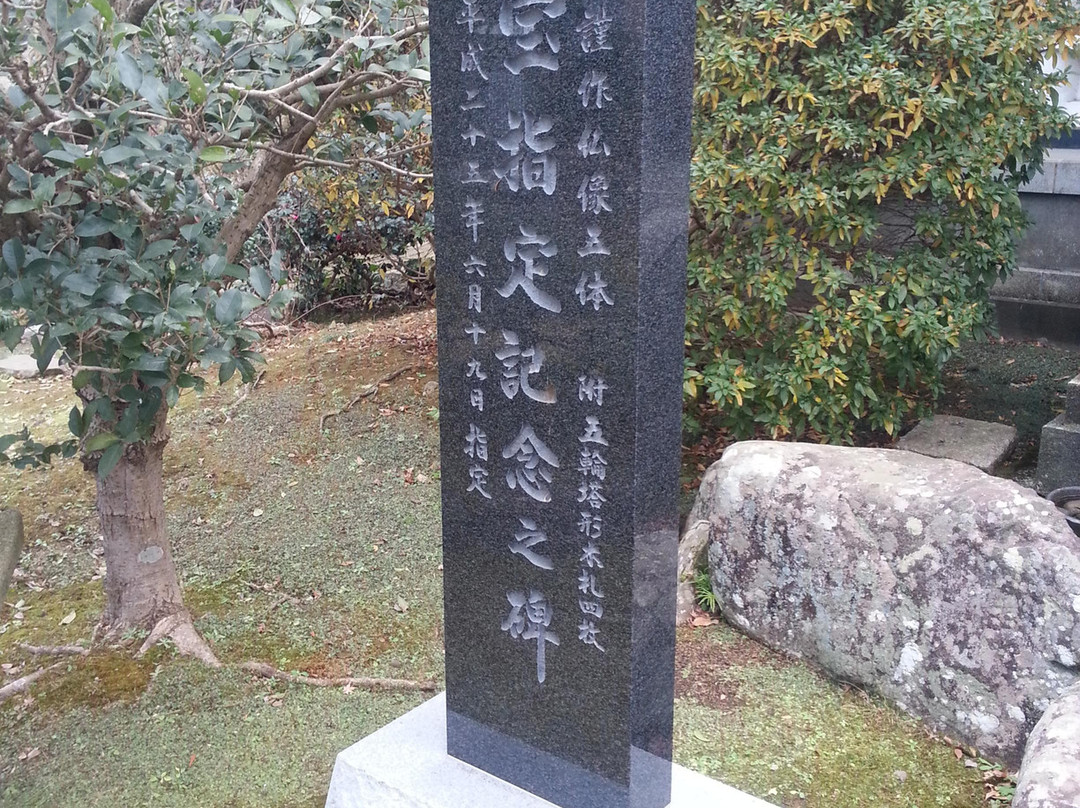 謹作仏像五体 附五輪塔形木札四枚
宝指定記念之碑
平成二十五年六月十九日指定